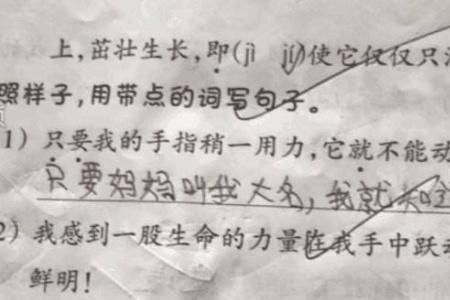 上,茁壮生长,即(jì jí)使它仅仅只
照样子,用带点的词写句子。
1) 只要我的手指稍一用力,它就不能动
只要妈妈叫我大名,我就知
2) 我感到一股生命的力量在我手中跃动
鲜明!